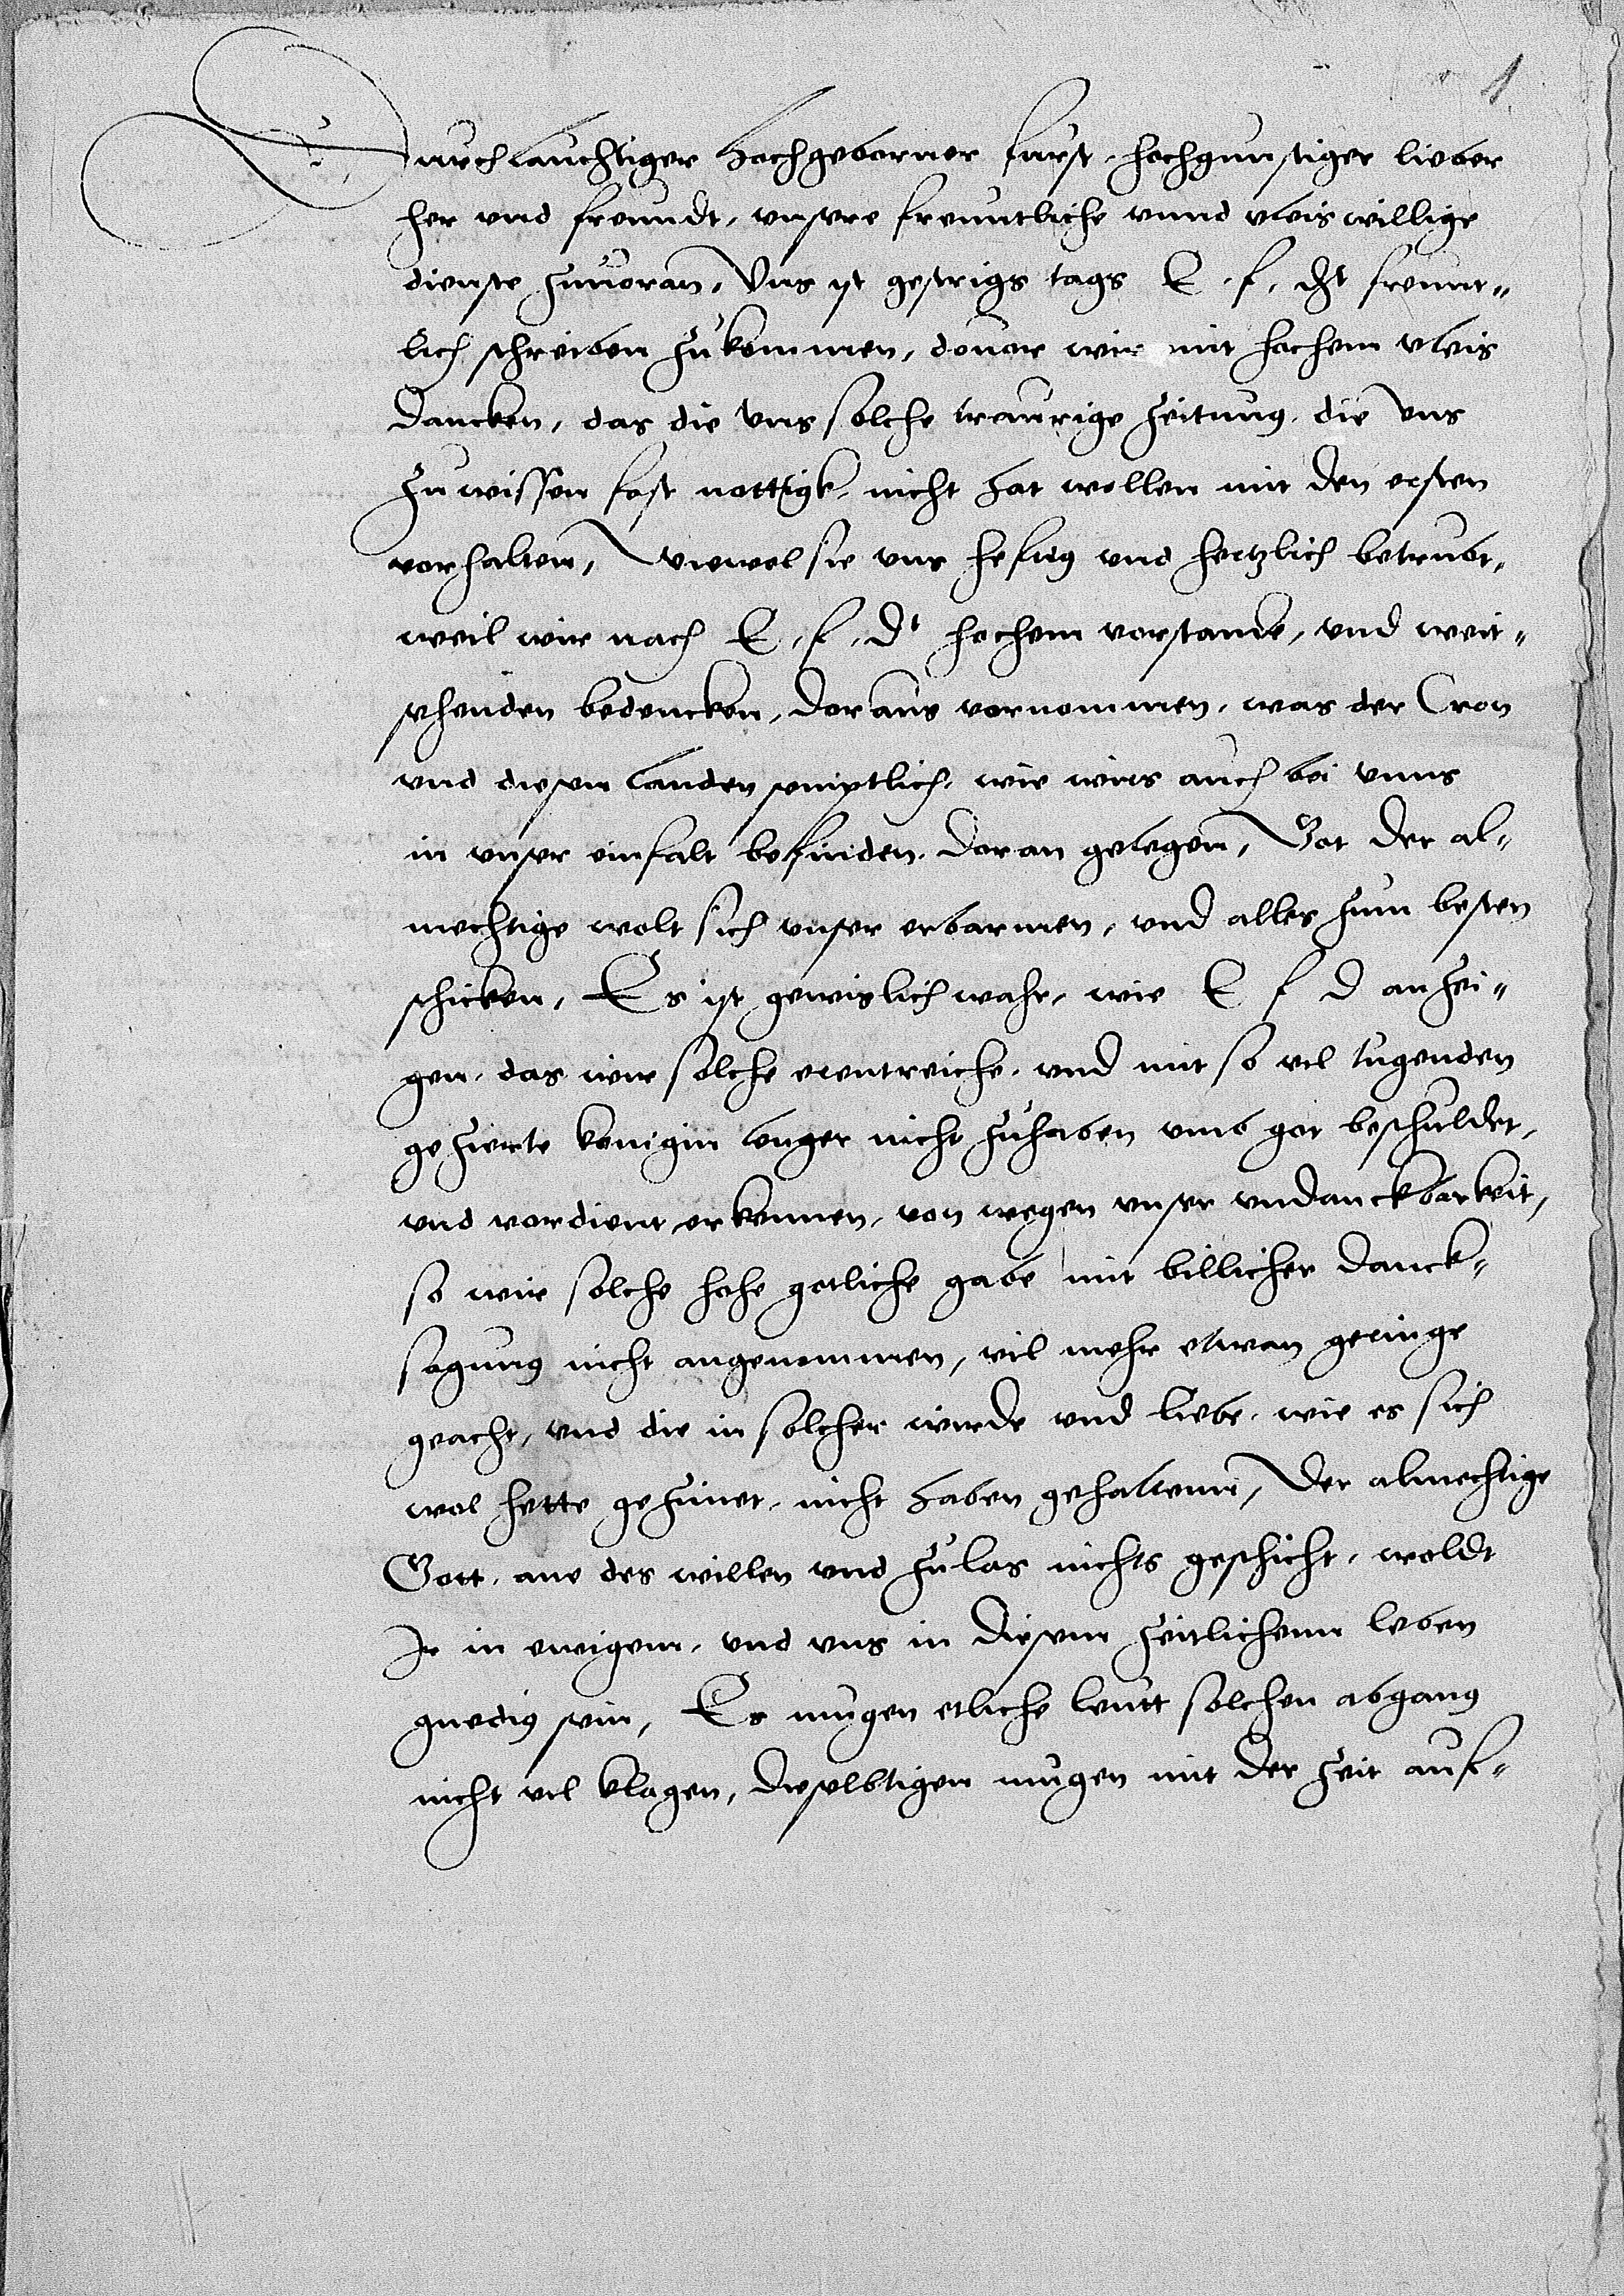 1
Durchlauchtiger Hochgeborner furst, hochgunstiger lieber
her vnd freundt, vnsere freuntliche vnnd vleiswillige
dienste zuuoran, Vns ist gestrigs tags E. f. dt freunt„
lich schreiben zukommen, douor wir mit hochem vleis
dancken, das die vns solche traurige zeitung, die vns
zuwissen fast nottigk, nicht hat wollen mit den ersten
vorhalten, Wiewol sie vns hefug vnd hertzlich betrubt,
weil wir nach E. f. Dt hochem vorstande, vnd weit„
sehenden bedencken, doraus vornommen, was der Cron
vnd diesen landen semptlich, wie wirs auch bei vnns
in vnser einfalt befinden, doran gelegen, Got der al„
mechtige wolt sich vnser erbarmen, vnd alles zum besten
schicken, Es ist gewislich wahr, wie E f D anzei„
gen, das wir solche erentreiche, vnd mit so vil tugenden
gezierte konigin lenger nicht zuhaben vmb got beschuldet,
vnd vordient erkennen, von wegen vnser vndanckbarkeit,
so wir solche hohe gotliche gabe mit billicher danck„
sagung nicht angenommen, vil mehr etwan geringe
geacht, vnd die in solcher wirde vnd liebe, wie es sich
wol hette gezimet, nicht haben gehaltenn, Der almechtige
Gott, ane des willen vnd zulas nichts geschicht, woldt
Ir in ewigem, vnd vns in diesem zeitlichenn leben
gnedig sein, Es mugen etliche leutt solchen abgang
nicht vil klagen, dieselbtigen mugen mit der zeit auf„